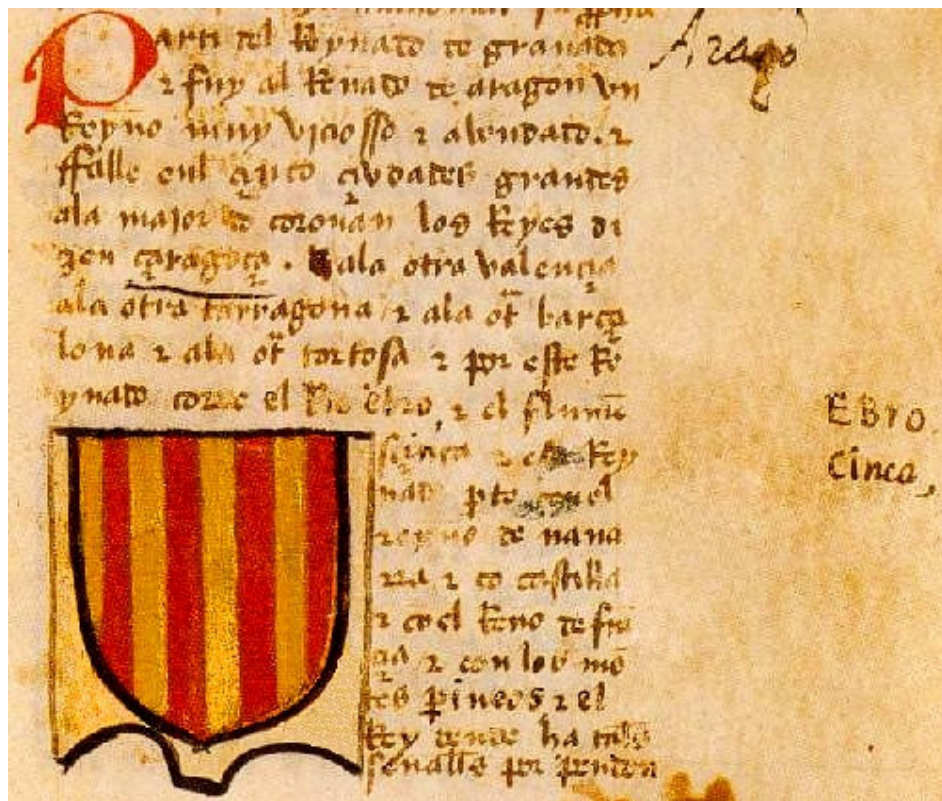 Parti del Reynado de granada
Arago
⁊ fuy al Renado de aragon vn
Reyno muy viciosso ⁊ abondado. ⁊
ffalle enl çinco çivdades grandes
ala maior do coronan los Reyes di
zen çaragoça. ala otra valençia
ala otra tarragona ⁊ ala ot barça
lona ⁊ ala ot tortosa ⁊ por este Re
ynado corre el Rio ebro, ⁊ el flumẽ
EBro
çinca ⁊ Rey
Cinca,
nado pte con el
reyno de nava
rra ⁊ cõ castilla
⁊ cõ el Reno de frã
çia ⁊ con los mõ
tes pineos ⁊ el
Rey dende ha tales
señalles por pendon